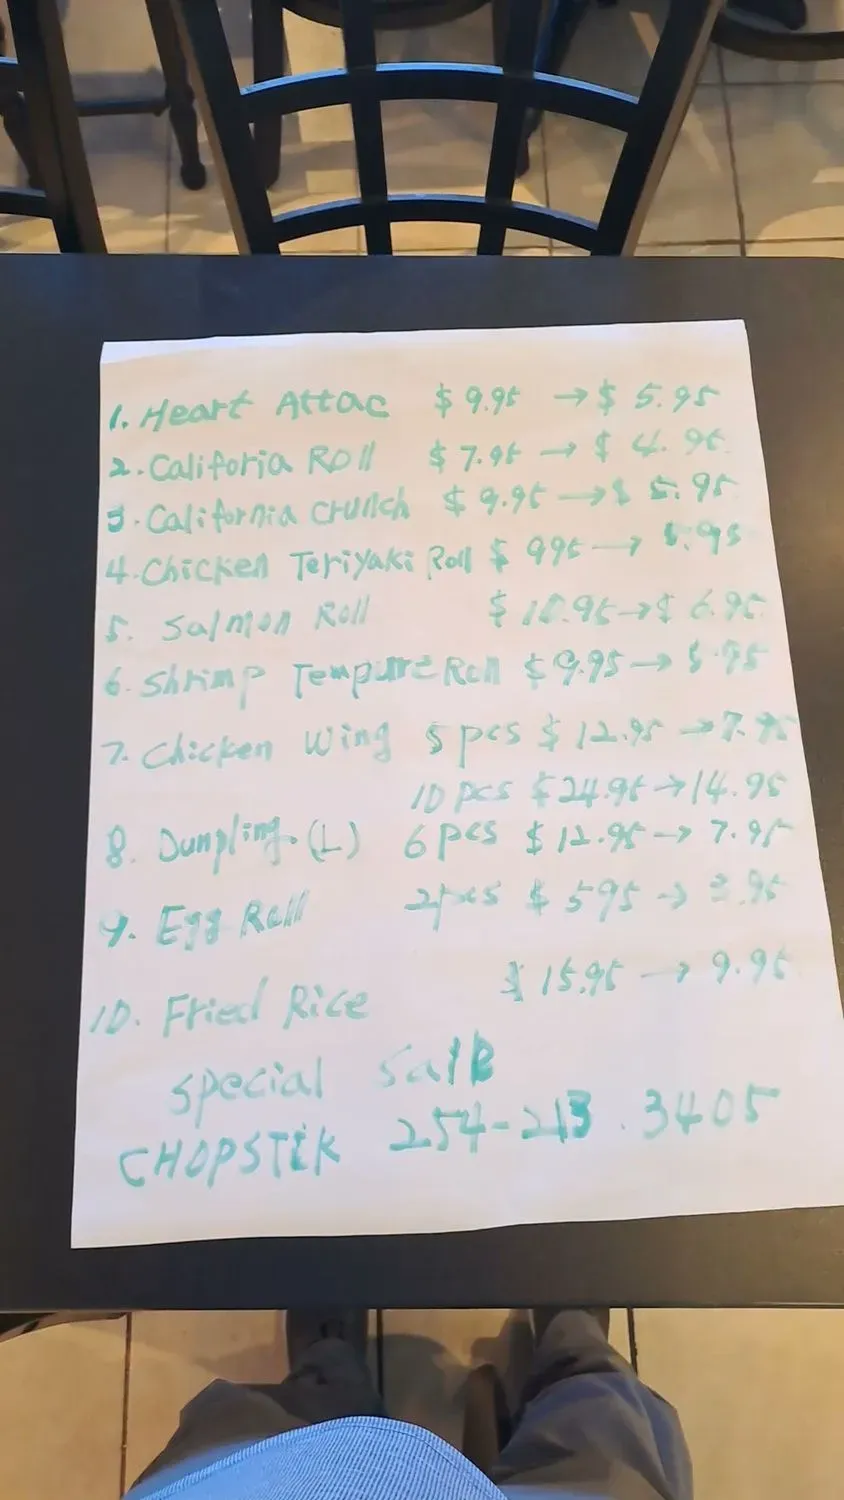 1. Heart Attac $ 9.95 → $ 5.95
2. Califoria Roll $ 7.95 → $ 4.95
3. California crunch $ 9.95 → $ 5.95
4. Chicken Teriyaki Roll $ 995 → 5.95
5. Salmon Roll $ 10.95 → $ 6.95
6. Shrimp Tempura Roll $ 9.95 → 5.95
7. Chicken Wing 5 pcs $ 12.95 → 7.95
10 pcs $24.95 → 14.95
8. Dumpling. (L) 6 pcs $ 12.95 → 7.95
9. Egg Roll 2pcs $ 595 → 3.95
10. Fried Rice $ 15.95 → 9.95
special Salb
CHOPSTIK 254-213.3405